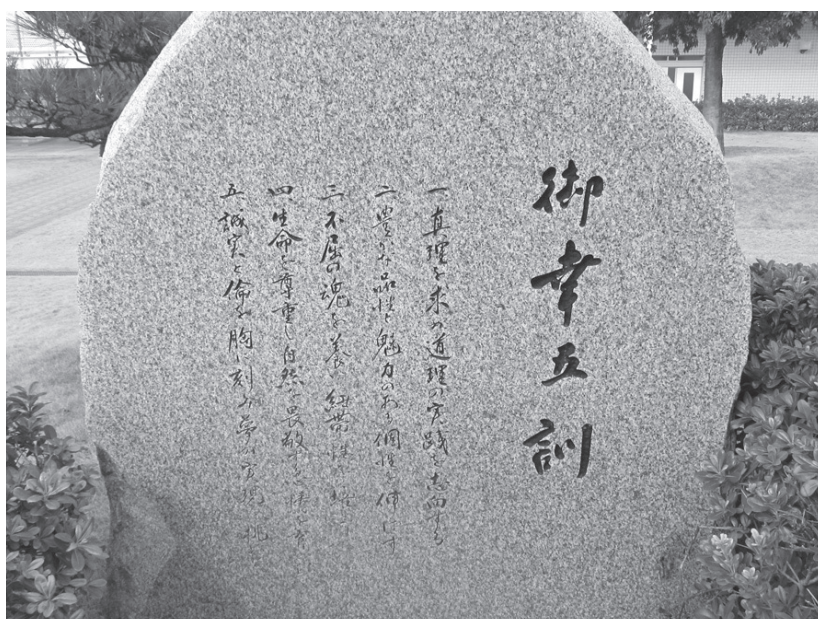 御幸五訓
一 真理を求め道理の実践を志向する
二 豊かな品性と魅力のある個性を伸ばす
三 不屈の魂を養い
四 生命を尊重し自然を畏敬する
五 誠実と倫を胸に刻み夢の実現に挑